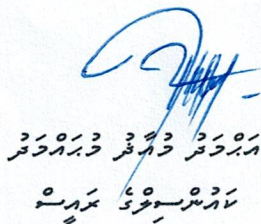 އަޙްމަދު މުޢާޛު މުޙައްމަދު
ކައުންސިލްގެ ރައީސް